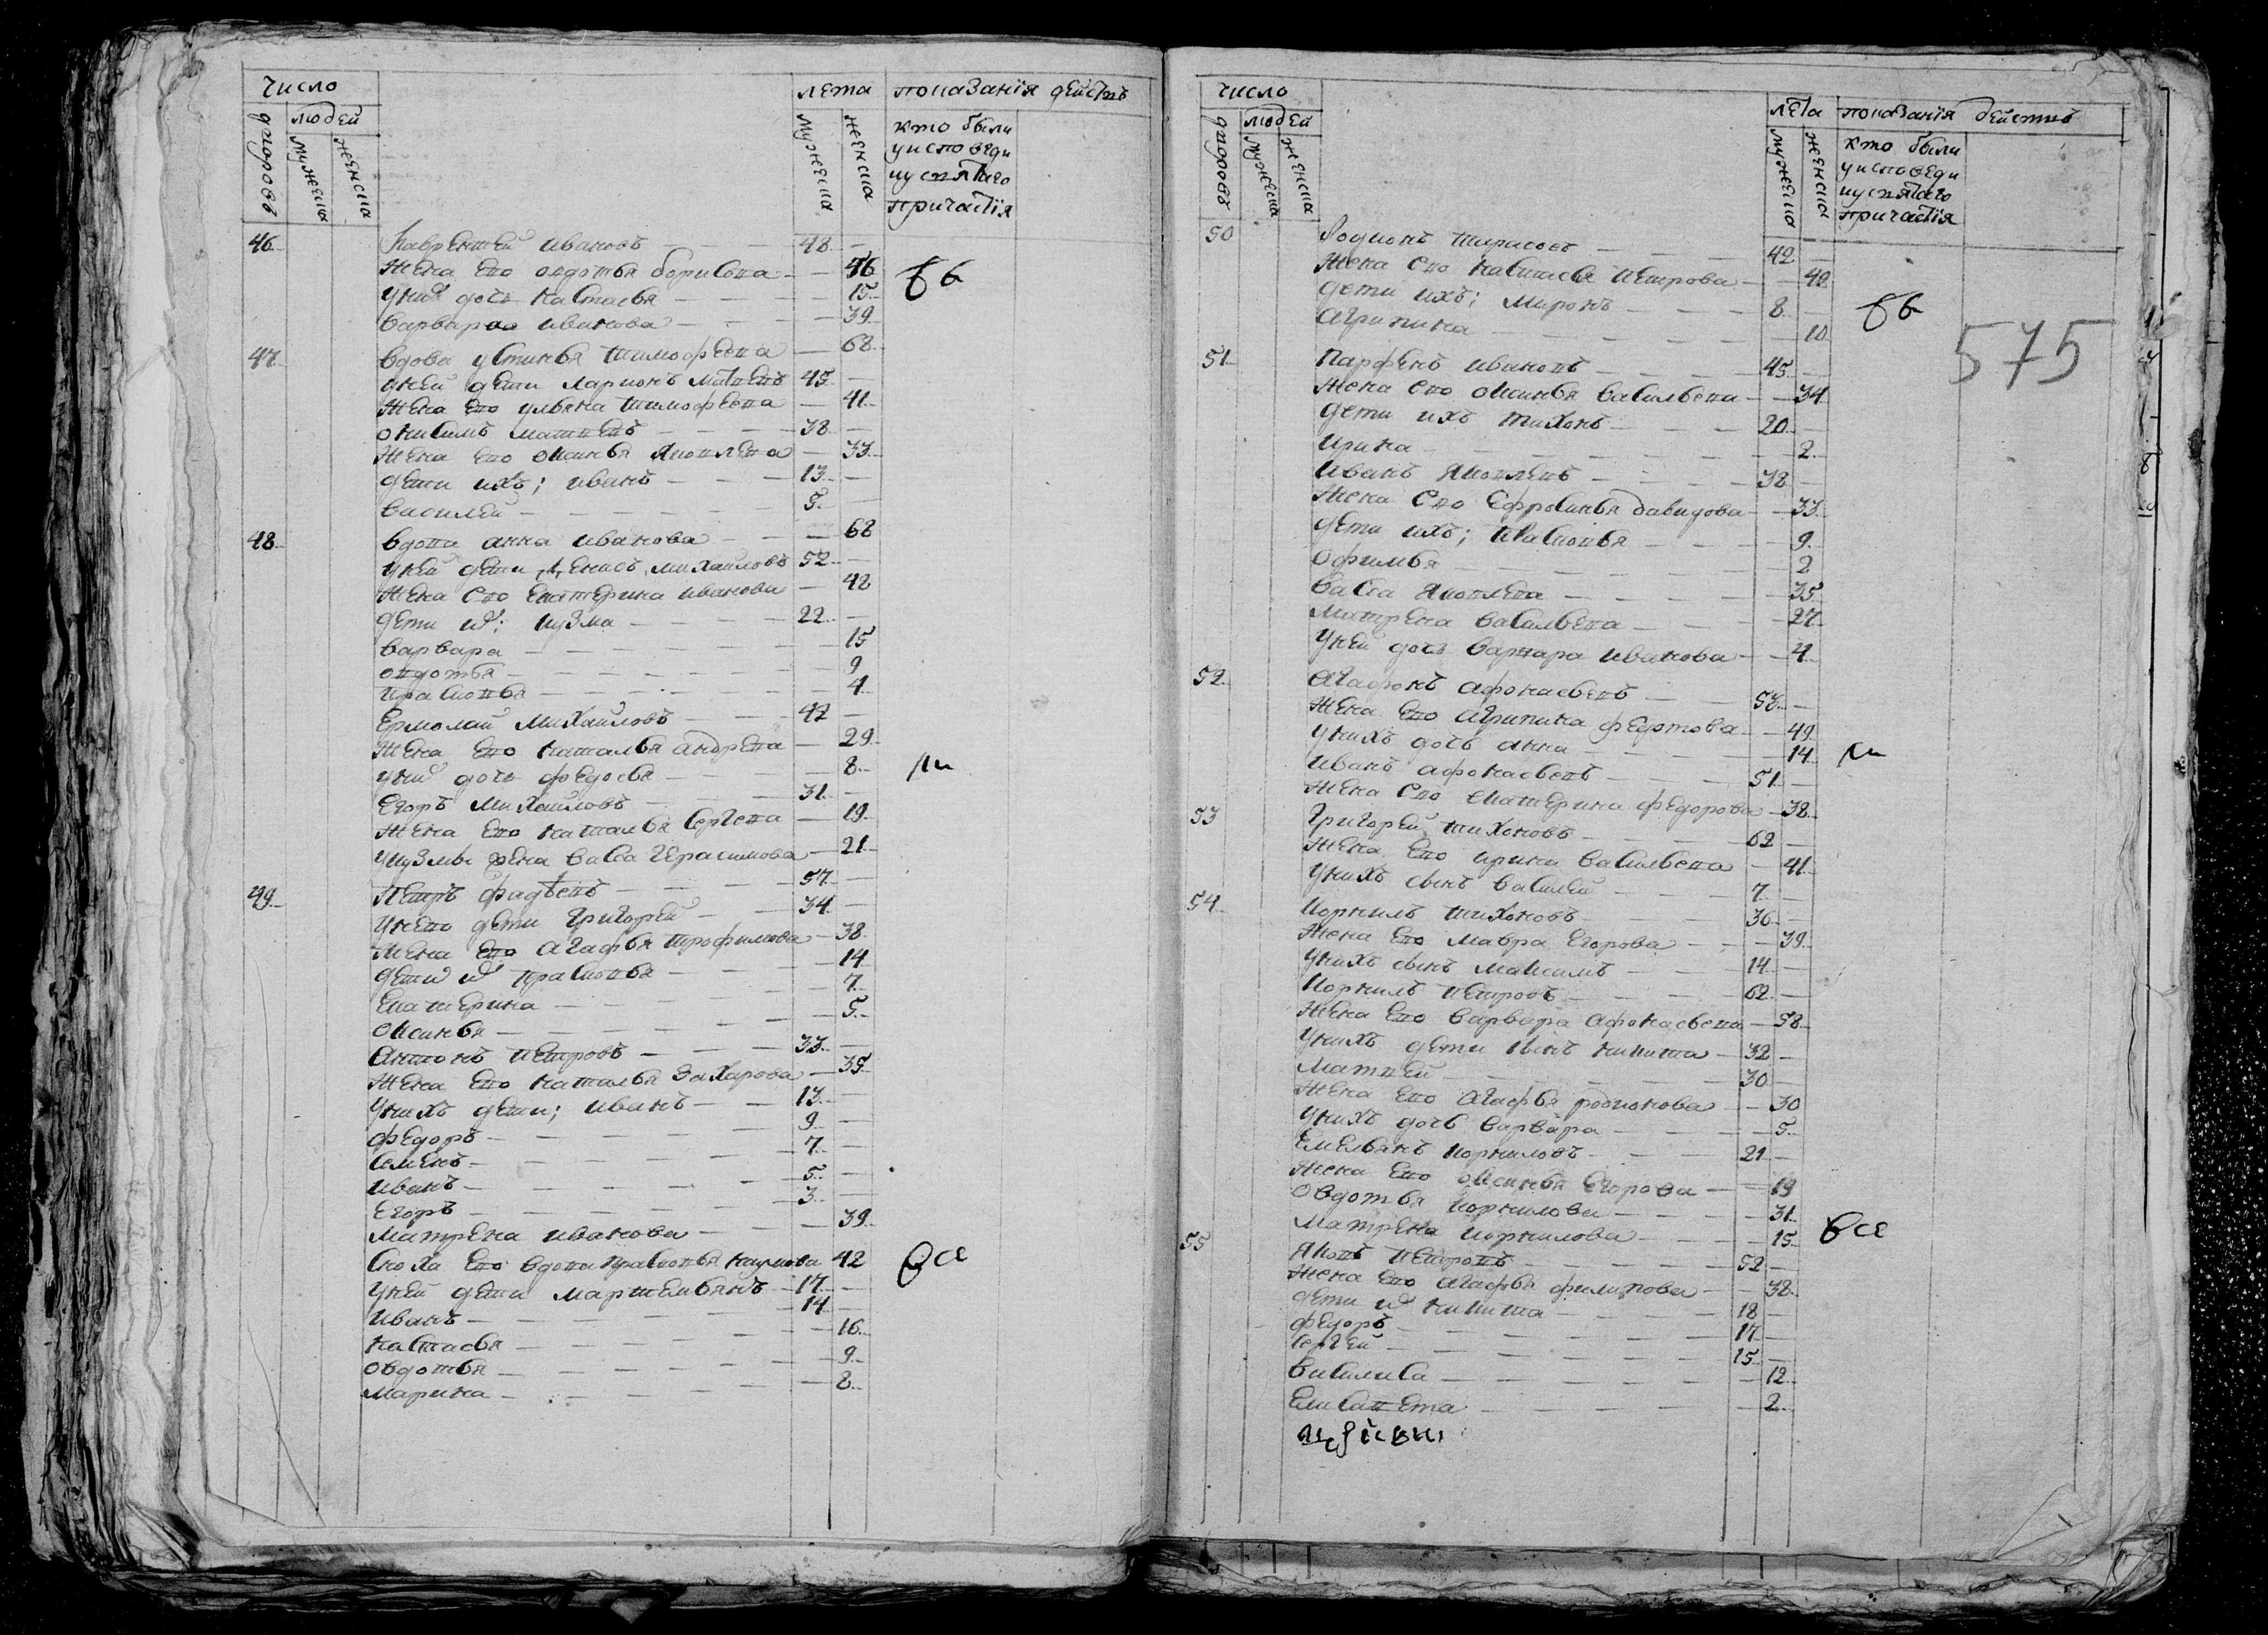 число
лета показанїя действъ
дворовъ
людей
мужеска
женска
мужеска
женска
кто были
уисповеди
иусвятаго
причастїя
46 Лаврентей ивановъ 48
жена ево овдотья борисова 46
уних дочь настасья 15
варвара иванова 39
47 вдова устинья тимофеева 68
уней дети ларионъ матвевъ 45
жена ево ульяна тимофеева 41
онисимъ матвевъ 38
жена ево оксинья яковлева 33
дети ихъ; иванъ 13
василей 5
48 вдова анна иванова 68
уней дети денисъ михаиловъ 52
жена ево екатерина иванова 42
дети их; кузма 22
варвара 15
овдотья 9
прасковья 4
Ермолай михаиловъ 42
жена ево наталья андрева 29
уних дочь федосья 8
Егоръ михаиловъ 31
жена ево наталья сергева 19
укузмы жена васса герасимова 21
49 петръ фадѣевъ 57
унево дети григорей 34
жена ево агафья трофимова 38
дети их прасковья 14
екатерина 7
оксинья 5
антонъ петровъ 33
жена ево наталья захарова 35
унихъ дети; иванъ 13
федоръ 9
семенъ 7
иванъ 5
егоръ 3
матрена иванова 39
сноха ево вдова прасковья наумова 42
уней дети мартемьянъ 17
иванъ 14
настасья 16
овдотья 9
марина 8
все
число
лета показанїя действъ
дворовъ
людей
мужеска
женска
мужеска
женска
кто были
уисповеди
иусвятаго
причастїя
575
50 Родионъ тарасовъ 42
жена ево настасья петрова 42
дети ихъ; миронъ 8
агрипина 10
51 парфенъ ивановъ 45
жена ево оксинья васильева 34
дети ихъ тихонъ 20
ирина 2
иванъ яковлевъ 38
жена ево ефросинья давидова 33
дети ихъ; прасковья 9
офимья 2
васса яковлева 35
матрена васильева 27
уней дочь варвара иванова 4
52 агафонъ афонасьевъ 58
жена ево агрипина федотова 49
унихъ дочь анна 14
иванъ афонасьевъ 51
жена ево екатерина федорова 38
53 григорей тихоновъ 62
жена ево ирина васильева 41
унихъ сынъ василей 7
54 корнилъ тихоновъ 36
жена ево мавра егорова 39
унихъ сынъ максимъ 14
корнилъ петровъ 62
жена ево варвара афонасьева 58
унихъ дети сынъ никита 32
матвей 30
жена ево агафья родионова 30
унихъ дочь варвара 5
емельянъ корниловъ 21
жена ево оксинья егорова 19
овдотья корнилова 31
матрена корнилова 15
все
55 яковъ петровъ 52
жена ево агафья филипова 38
дети их никита 18
федоръ 17
сергей 15
василиса 12
елисавета 2